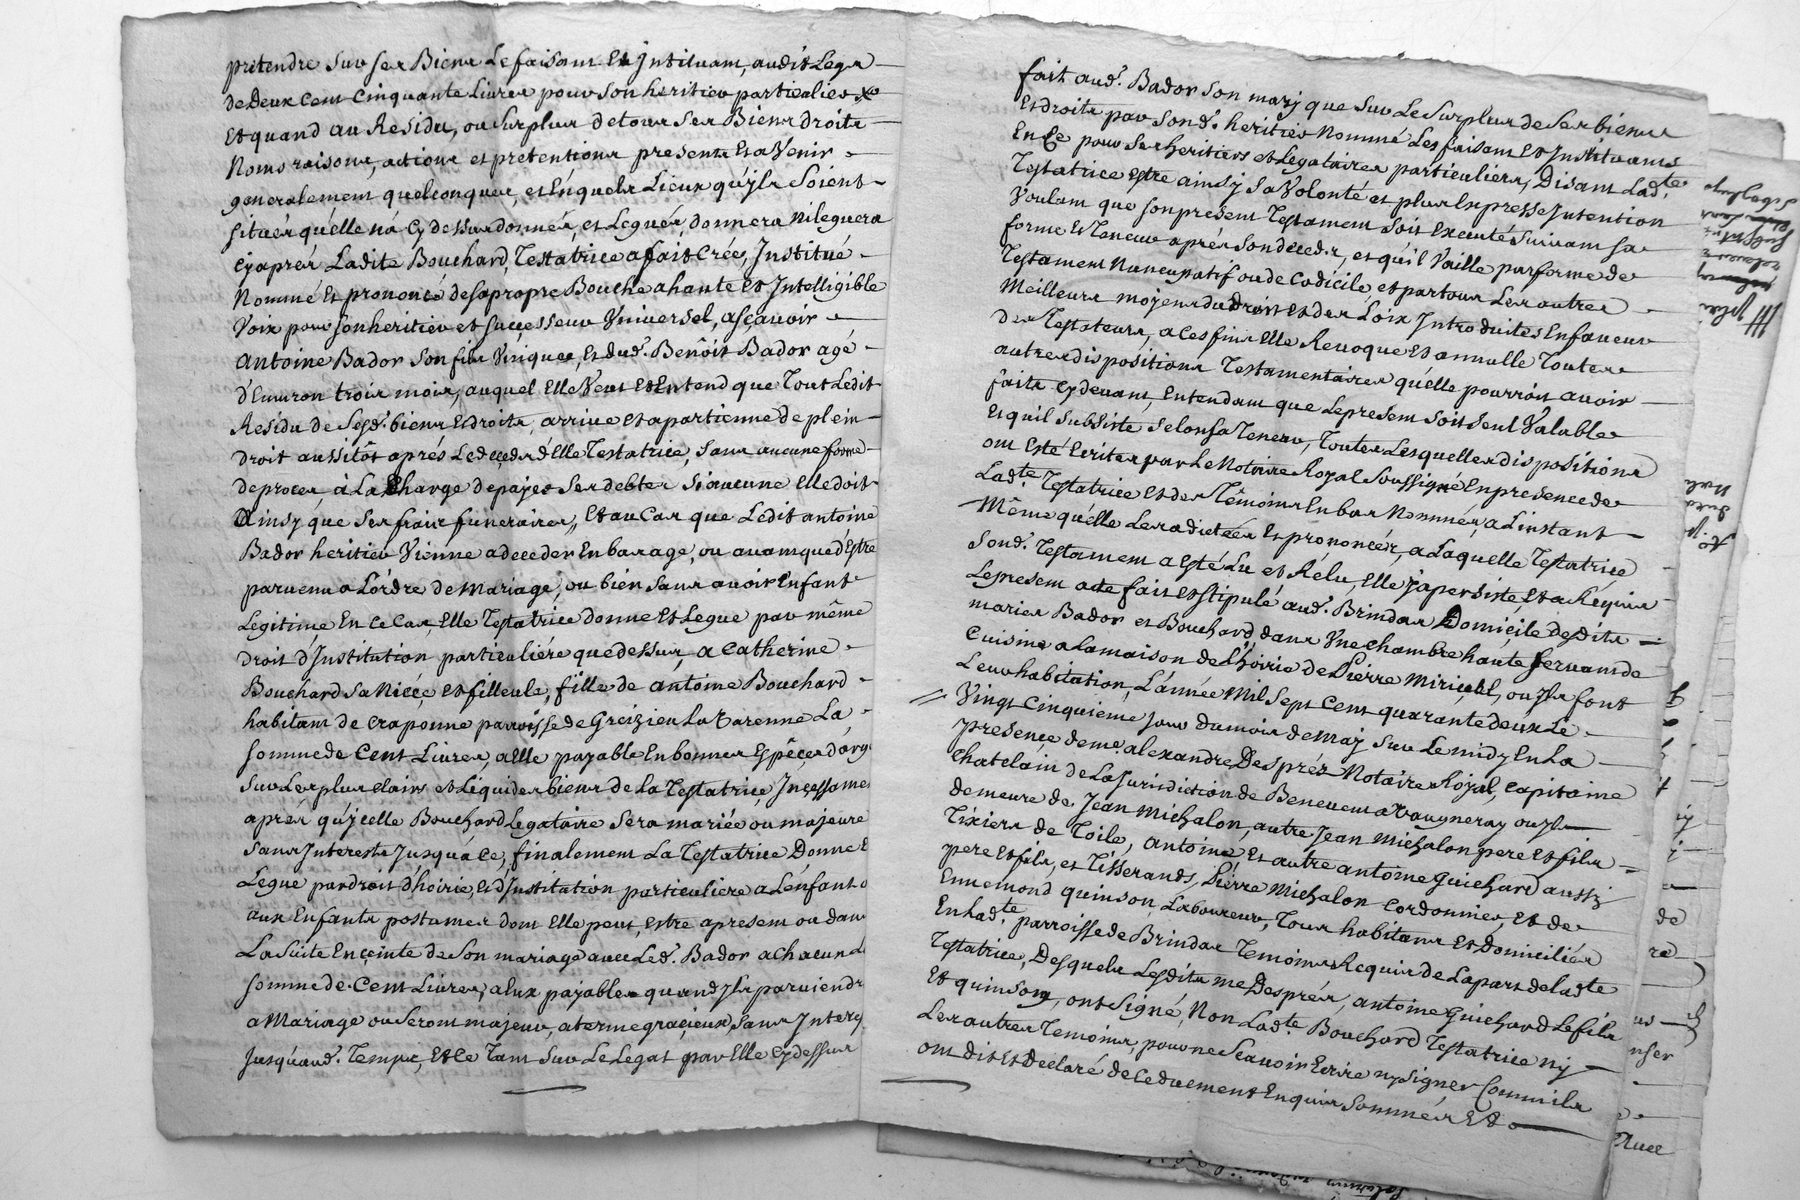 pretendre sur ses Biens Le faisant Et Instituant, audit Legs
de Deux Cent Cinquante Livres pour son heritier particulier
Et quand au Residu, ou Surplus de tous Ses Biens droits
Noms raisons, actions et pretentions presents Et a Venir
generalement quelconques, et Enquels Lieux qu'jls Soient
situés qu'elle n'a Cy dessus donnés, et Legués, donnera ni leguera
cy aprés Ladite Bouchard, Testatrice a fait Crée, Institué
Nommé Et prononcé de sa propre Bouche a haute Et Intelligible
Voix pour son heritier et successeur Vniversel, a sçavoir
Antoine Bador son fils Vnique, Et dud. Benôit Bador agé
d'Environ trois mois, auquel Elle Veut Et Entend que Tout Ledit
Residu de Sesd. biens Et droits, arrive Et apartienne de plein
droit aussitôt aprés Le deceds d'Elle Testatrice, sans aucune forme
de proces, à La Charge de payer Ses debtes si aucune Elle doit
Ainsy que Ses frais funeraires, Et au Cas que Ledit antoine
Bador heritier Vienne a deceder En bas age, ou avant que d'Estre
parvenu a L'ordre de Mariage, ou bien sans avoir Enfant
Legitime En ce Cas, Elle Testatrice donne Et Legue par même
droit d'Institution particuliére que dessus, a Catherine
Bouchard sa Niéce, et filleule, fille de antoine Bouchard
habitant de Craponne parroisse de Greizieu La Varenne La
somme de Cent Livres, a Elle payable En bonnes Espêces d'or
Sur Les plus clairs et Liquides biens de La Testatrice, Incessamen
aprés qu'jcelle Bouchard Legataire Sera mariée ou majeure
sans Interests Jusqu'a ce, finalement La Testatrice Donne E
Legue par droit d'hoirie, Et d'Institution particuliere a L'enfant o
aux Enfants postumes dont Elle peut, Estre apresent ou dans
La Suite Enceinte de Son mariage avec Led. Bador a chacun La
somme de Cent Livres, a Eux payables quand jls parviendr
a Mariage ou seront majeurs, a terme gracieux, sans Inter
Jusqu'aud. Temps, Et Ce Tant Sur Le Legat par Elle Cy dessus
fait aud. Bador son mary que Sur Le Surplus de Ses biens
Et droits par Sond. heritier Nommé Les faisant Et Instituants
En Ce pour Ses heritiers et Legataires particuliers, Disant Ladte
Testatrice estre ainsy Sa Volonté et plus Expresse Intention
Voulant que son present Testament soit Executé suivant sa
forme Et Teneur aprés Son deceds, et qu'il Vaille par forme de
Testament Nuncupatif ou de Codicile, et par tous Les autres
Meilleurs moyens du Droit et des Loix Introduites En faveur
Des Testateurs, a Ces fins Elle Revoque Et annulle Toutes
autres dispositions Testamentaires qu'elle pourroit avoir
faits cy devant, Entendant que Le present soit seul Valable
Et quil Subsiste Selon sa Teneur, Toutes Lesquelles dispositions
ont Esté Ecrites par Le Notaire Royal Soussigné En presence de
Ladte Testatrice Et des Têmoins En bas Nommés, a L'instant
Même qu'elle Les a dictées Et prononcées, a Laquelle Testatrice
Sond. Testament a Esté Lu et Rélu, Elle j a persisté, Et a Requis
Le present acte fait Et stipulé aud. Brindas Domicile desdits
mariés Bador et Bouchard, dans Vne chambre haute servant de
Cuisine a La maison de L'hoirie de Pierre Miricel, ou jls font
Leur habitation, L'année Mil Sept Cent quarante deux Le
Vingt Cinquieme jour du mois de May Sur Le midy En La
presence de me alexandre Després Notaire Royal, Capitaine
Chatelain de La Jurisdiction de Benevent a Vaugneray ou jl
demeure de Jean Michalon, autre Jean Michalon pere Et fils
Tixiers de Toile, Antoine Et autre antoine Guichard aussi
pere Et fils, et Tisserands, Pierre Michalon Cordonnier, Et de
Ennemond quinson, Laboureur, Tous habitans Et Domiciliés
En Ladte parroisse de Brindas Temoins Requis de La part de Ladte
Testatrice, Desquels Lesdits me Després, antoine Guichard Le fils
Et quinson, ont Signé, Non Ladte Bouchard Testatrice ny
Les autres Temoins, pour ne Scavoir Ecrire ny Signer Comm'ils
ont dit Et Declaré de Ce duement Enquis Sommés Et